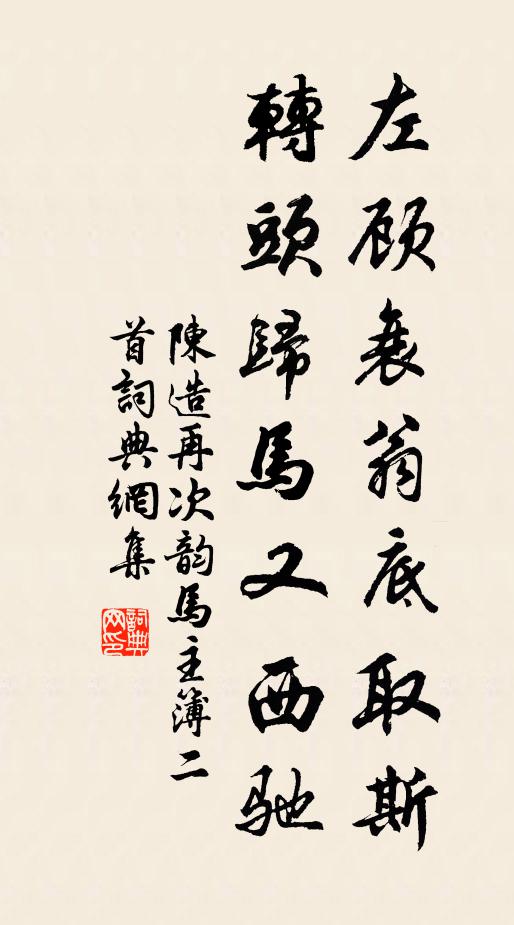 左顾衰翁底取斯
轉頭歸馬又西驰
陳造再次韵馬主簿二
首詞典網集
詞典
网印